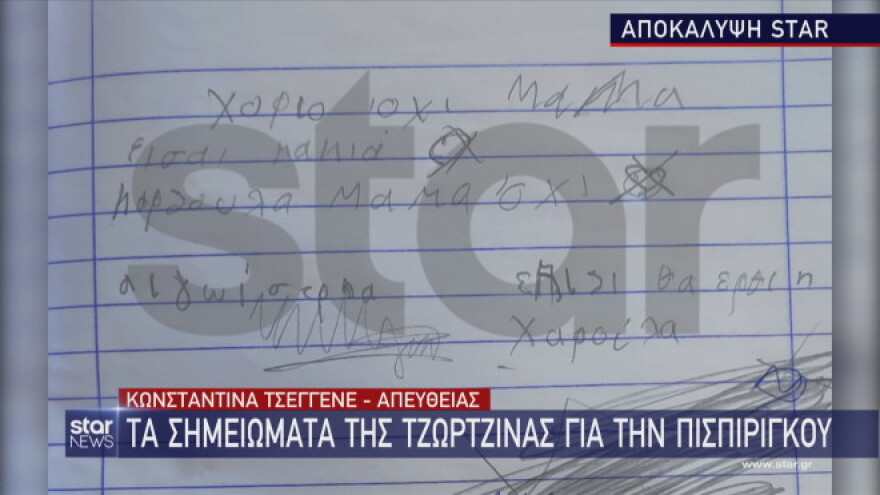 ΑΠΟΚΑΛΥΨΗ STAR
star
χοριο ιοχι μαμα
εισαι κακιά
μαμα όχι
επισι θα ερθι η
Χαρούλα
ΚΩΝΣΤΑΝΤΙΝΑ ΤΣΕΓΓΕΝΕ - ΑΠΕΥΘΕΙΑΣ
star NEWS
ΤΑ ΣΗΜΕΙΩΜΑΤΑ ΤΗΣ ΤΖΩΡΤΖΙΝΑΣ ΓΙΑ ΤΗΝ ΠΙΣΠΙΡΙΓΚΟΥ
www.star.gr